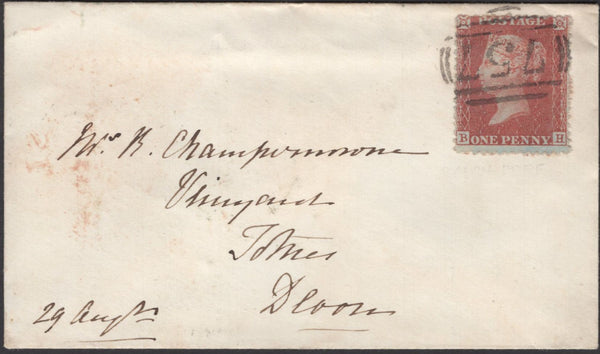 POSTAGE
B ONE PENNY H
Mrs R. Champernowne
Vineyard
Totnes
Devon
29 Augt